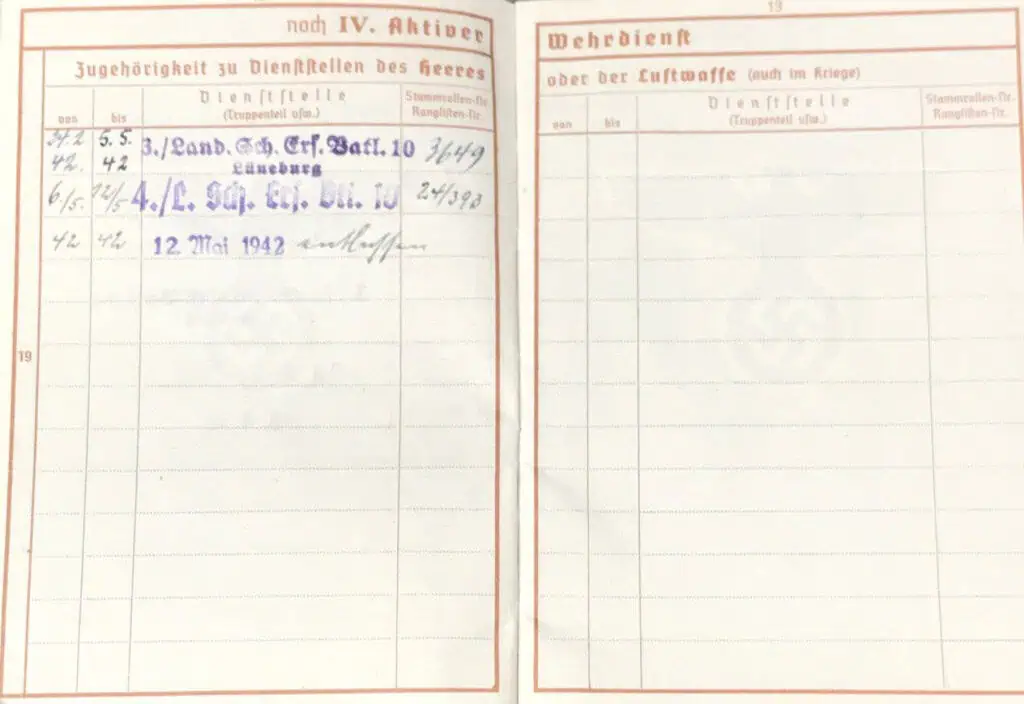 noch IV. Aktiver
Zugehörigkeit zu Dienststellen des Heeres
von
bis
Dienststelle
(Truppenteil usw.)
Stammrollen-Nr.
Ranglisten-Nr.
24.2. 5.5. 3./Land. Sch. Ers. Batl. 10 3649
42. 42 Lüneburg
6./5. 12/5 4./L. Sch. Ers. Btl. 10 24/393
42 42 12. Mai 1942 entlassen
19
13
Wehrdienst
oder der Luftwaffe (auch im Kriege)
von
bis
Dienststelle
(Truppenteil usw.)
Stammrollen-Nr.
Ranglisten-Nr.